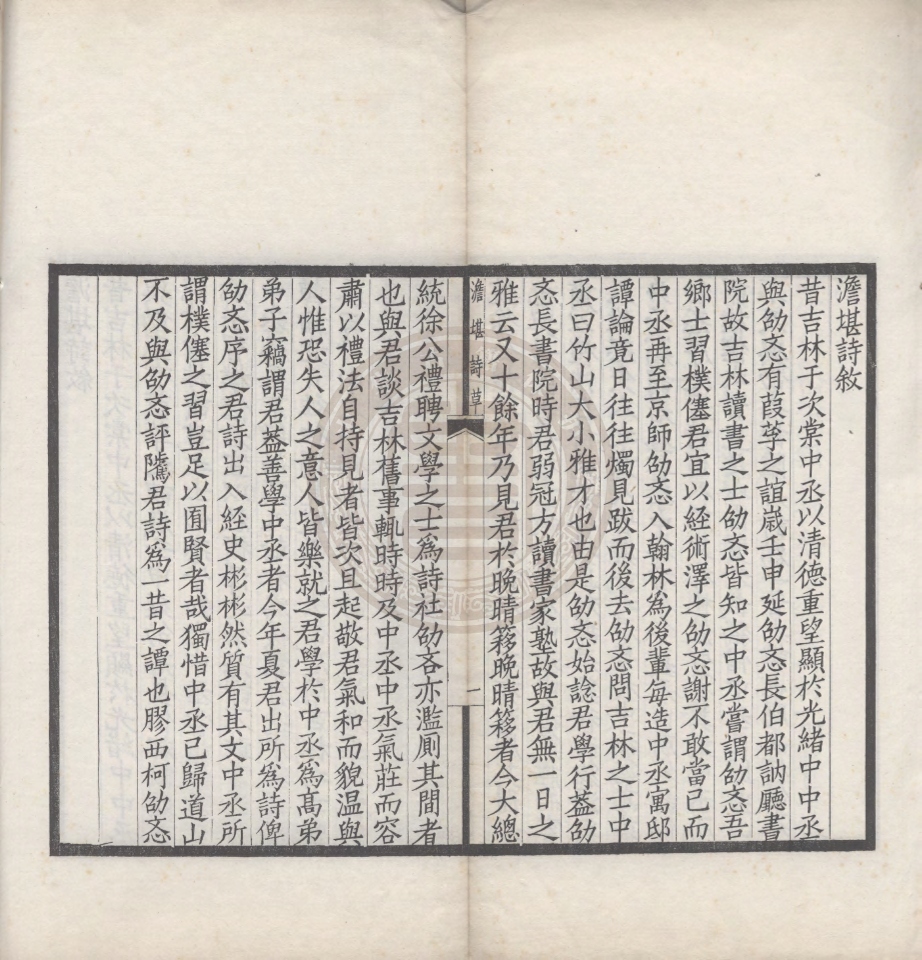 澹堪詩敘
昔吉林于次棠中丞以清德重望顯於光緒中中丞
與劭忞有葭莩之誼嵗壬申延劭忞長伯都訥廳書
院故吉林讀書之士劭忞皆知之中丞嘗謂劭忞吾
鄉士習樸僿君宜以經術澤之劭忞謝不敢當已而
中丞再至京師劭忞入翰林為後輩每造中丞寓邸
譚論竟日往往燭見跋而後去劭忞問吉林之士中
丞曰竹山大小雅才也由是劭忞始諗君學行葢劭
忞長書院時君弱冠方讀書家塾故與君無一日之
雅云又十餘年乃見君於晚晴簃晚晴簃者今大總
澹堪詩草
一
統徐公禮聘文學之士為詩社劭忞亦濫厠其間者
也與君談吉林舊事輒時時及中丞中丞氣莊而容
肅以禮法自持見者皆次且起敬君氣和而貌温與
人惟恐失人之意人皆樂就之君學於中丞為髙弟
弟子竊謂君葢善學中丞者今年夏君出所為詩俾
劭忞序之君詩出入經史彬彬然質有其文中丞所
謂樸僿之習豈足以囿賢者哉獨惜中丞已歸道山
不及與劭忞評隲君詩為一昔之譚也膠西柯劭忞